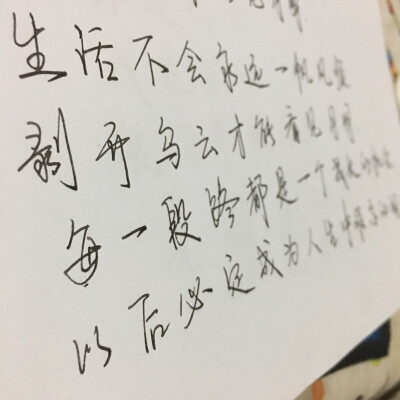 生活不会永远一帆风顺
剥开乌云才能看见月明
每一段路都是一个成长的
以后必定成为人生中